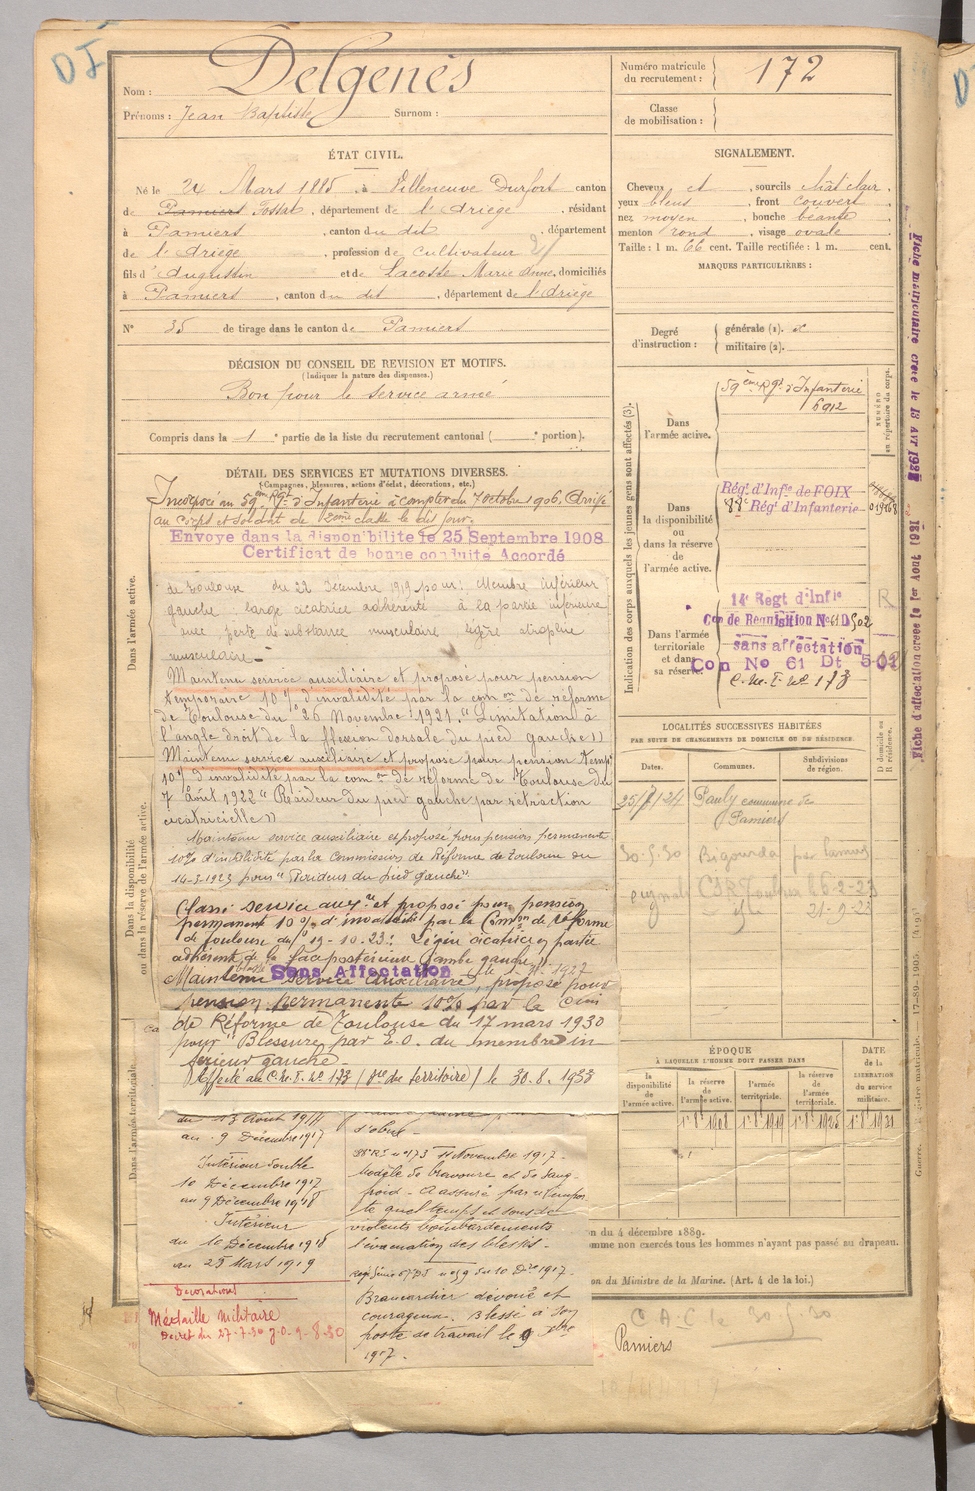 DI
Nom : Delgenès
Prénoms : Jean Baptiste Surnom :
ÉTAT CIVIL.
Né le 24 Mars 1885, à Villeneuve Durfort canton
de Pamiers Fossat, département de l'Ariège, résidant
à Pamiers, canton du dit, département
de l'Ariège, profession de cultivateur
fils d'Augustin et de Lacoste Marie Anne, domiciliés
à Pamiers, canton du dit, département de l'Ariège
N° 35 de tirage dans le canton de Pamiers
DÉCISION DU CONSEIL DE REVISION ET MOTIFS.
(Indiquer la nature des dispenses.)
Bon pour le service armé
Compris dans la 1e partie de la liste du recrutement cantonal ( e portion).
DÉTAIL DES SERVICES ET MUTATIONS DIVERSES.
(Campagnes, blessures, actions d'éclat, décorations, etc.)
Incorporé au 59ème Rgt d'Infanterie à compter du 7 octobre 1906, Arrivé
au corps et soldat de 2ème classe le dit jour.
Envoyé dans la disponibilité le 25 Septembre 1908
Certificat de bonne conduite Accordé
de Toulouse du 22 Décembre 1919 pour : Membre inférieur
gauche : large cicatrice adhérente à la partie inférieure
avec perte de substance musculaire, légère atrophie
musculaire.-
Maintenu service auxiliaire et proposé pour pension
temporaire 10% d'invalidité par la comon de réforme
de Toulouse du 26 Novembre 1921. "Limitation à
l'angle droit de la flexion dorsale du pied gauche"
Maintenu service auxiliaire et proposé pour pension temp
10% d'invalidité par la comon de réforme de Toulouse du
7 Août 1922 "Raideur du pied gauche par rétraction
cicatricielle"
Maintenu service auxiliaire et proposé pour pension permanente
10% d'invalidité par la Commission de Réforme de Toulouse du
14-3-1923 pour "Roideur du pied gauche".
Classé service auxre et proposé pour pension
permanente 10% d'invalidité par la Comon de Réforme
de Toulouse du 19-10-23 : Légère cicatrice, partie
adhérente de la face postérieure jambe gauche"
Sans Affectation
Maintenu service auxiliaire, proposé pour
pension permanente 10% par la Com
de Réforme de Toulouse du 17 mars 1930
pour "Blessure par E.O. du membre in
férieur gauche-
Affecté au C.M.I. N° 173 (Sce du territoire) le 30.8.1933
du 13 Août 1917
au 9 Décembre 1917
Intérieur double
10 Décembre 1917
au 9 Décembre 1918
Intérieur
du 10 Décembre 1918
au 25 Mars 1919
Décorations
Médaille Militaire
Décret du 27-7-30 J.O. 9-8-30
d'obus -
n° 173 11 Novembre 1917 -
Modèle de bravoure et de sang-
froid - A assuré par n'impor
te quel temps et sous de
violents bombardements
l'évacuation des blessés -
n° 59 du 10 Dre 1917 -
Brancardier dévoué et
courageux. Blessé à son
poste de travail le 9 xbre
1917 -
Dans l'armée active.
Dans la disponibilité
ou dans la réserve de l'armée active.
Dans l'armée territoriale.
Numéro matricule
du recrutement : 172
Classe
de mobilisation :
SIGNALEMENT.
Cheveux et, sourcils chât clair,
yeux bleus, front couvert
nez moyen, bouche béante
menton rond, visage ovale
Taille : 1 m. 66 cent. Taille rectifiée : 1 m. cent.
MARQUES PARTICULIÈRES :
Degré
d'instruction :
générale (1).
militaire (2).
Indication des corps auxquels les jeunes gens sont affectés (3).
NUMÉRO
au répertoire du corps.
Dans
l'armée active.
59ème Rgt d'Infanterie
6912
Dans
la disponibilité
ou
dans la réserve
de
l'armée active.
Régt d'Infie de FOIX
88e Régt d'Infanterie
019168
Dans l'armée
territoriale
et dans
sa réserve.
14e Regt d'Infie
Con de Requisition N° 61 D 502
sans affectation
Con No 61 Dt 502
C.M.I. N° 173
R
LOCALITÉS SUCCESSIVES HABITÉES
PAR SUITE DE CHANGEMENTS DE DOMICILE OU DE RÉSIDENCE.
Dates.
Communes.
Subdivisions
de région.
D domicile ou
R résidence.
25/7/24 Pauly commune de
Pamiers
30-5-30 Bigourda par Pamiers
21-9-23
ÉPOQUE
À LAQUELLE L'HOMME DOIT PASSER DANS
la
disponibilité
de
l'armée active.
la réserve
de
l'armée active.
l'armée
territoriale.
la réserve
de
l'armée
territoriale.
DATE
de la
LIBÉRATION
du service
militaire.
1er 8bre 1908
1er 8bre 1919
1er 8bre 1925
1er 8bre 1931
on du 4 décembre 1889.
omme non exercés tous les hommes n'ayant pas passé au drapeau.
on du Ministre de la Marine. (Art. 4 de la loi.)
C.A.C le 30-5-30
Pamiers
Fiche matriculaire créée le 13 AVR 1927
Fiche d'affectation créée le 1er AOUT 1931